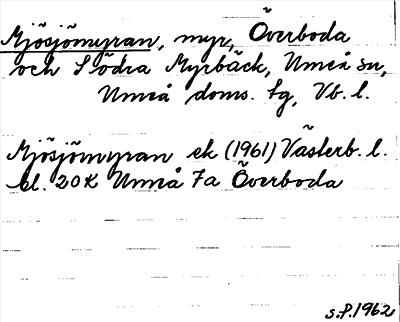 Mjösjömyran, myr, Överboda
och Södra Myrbäck, Umeå sn,
Umeå doms. tg, Vb. l.
Mjösjömyran ek (1961) Västerb. l.
bl. 20K Umeå 7a Överboda
S.P. 1962